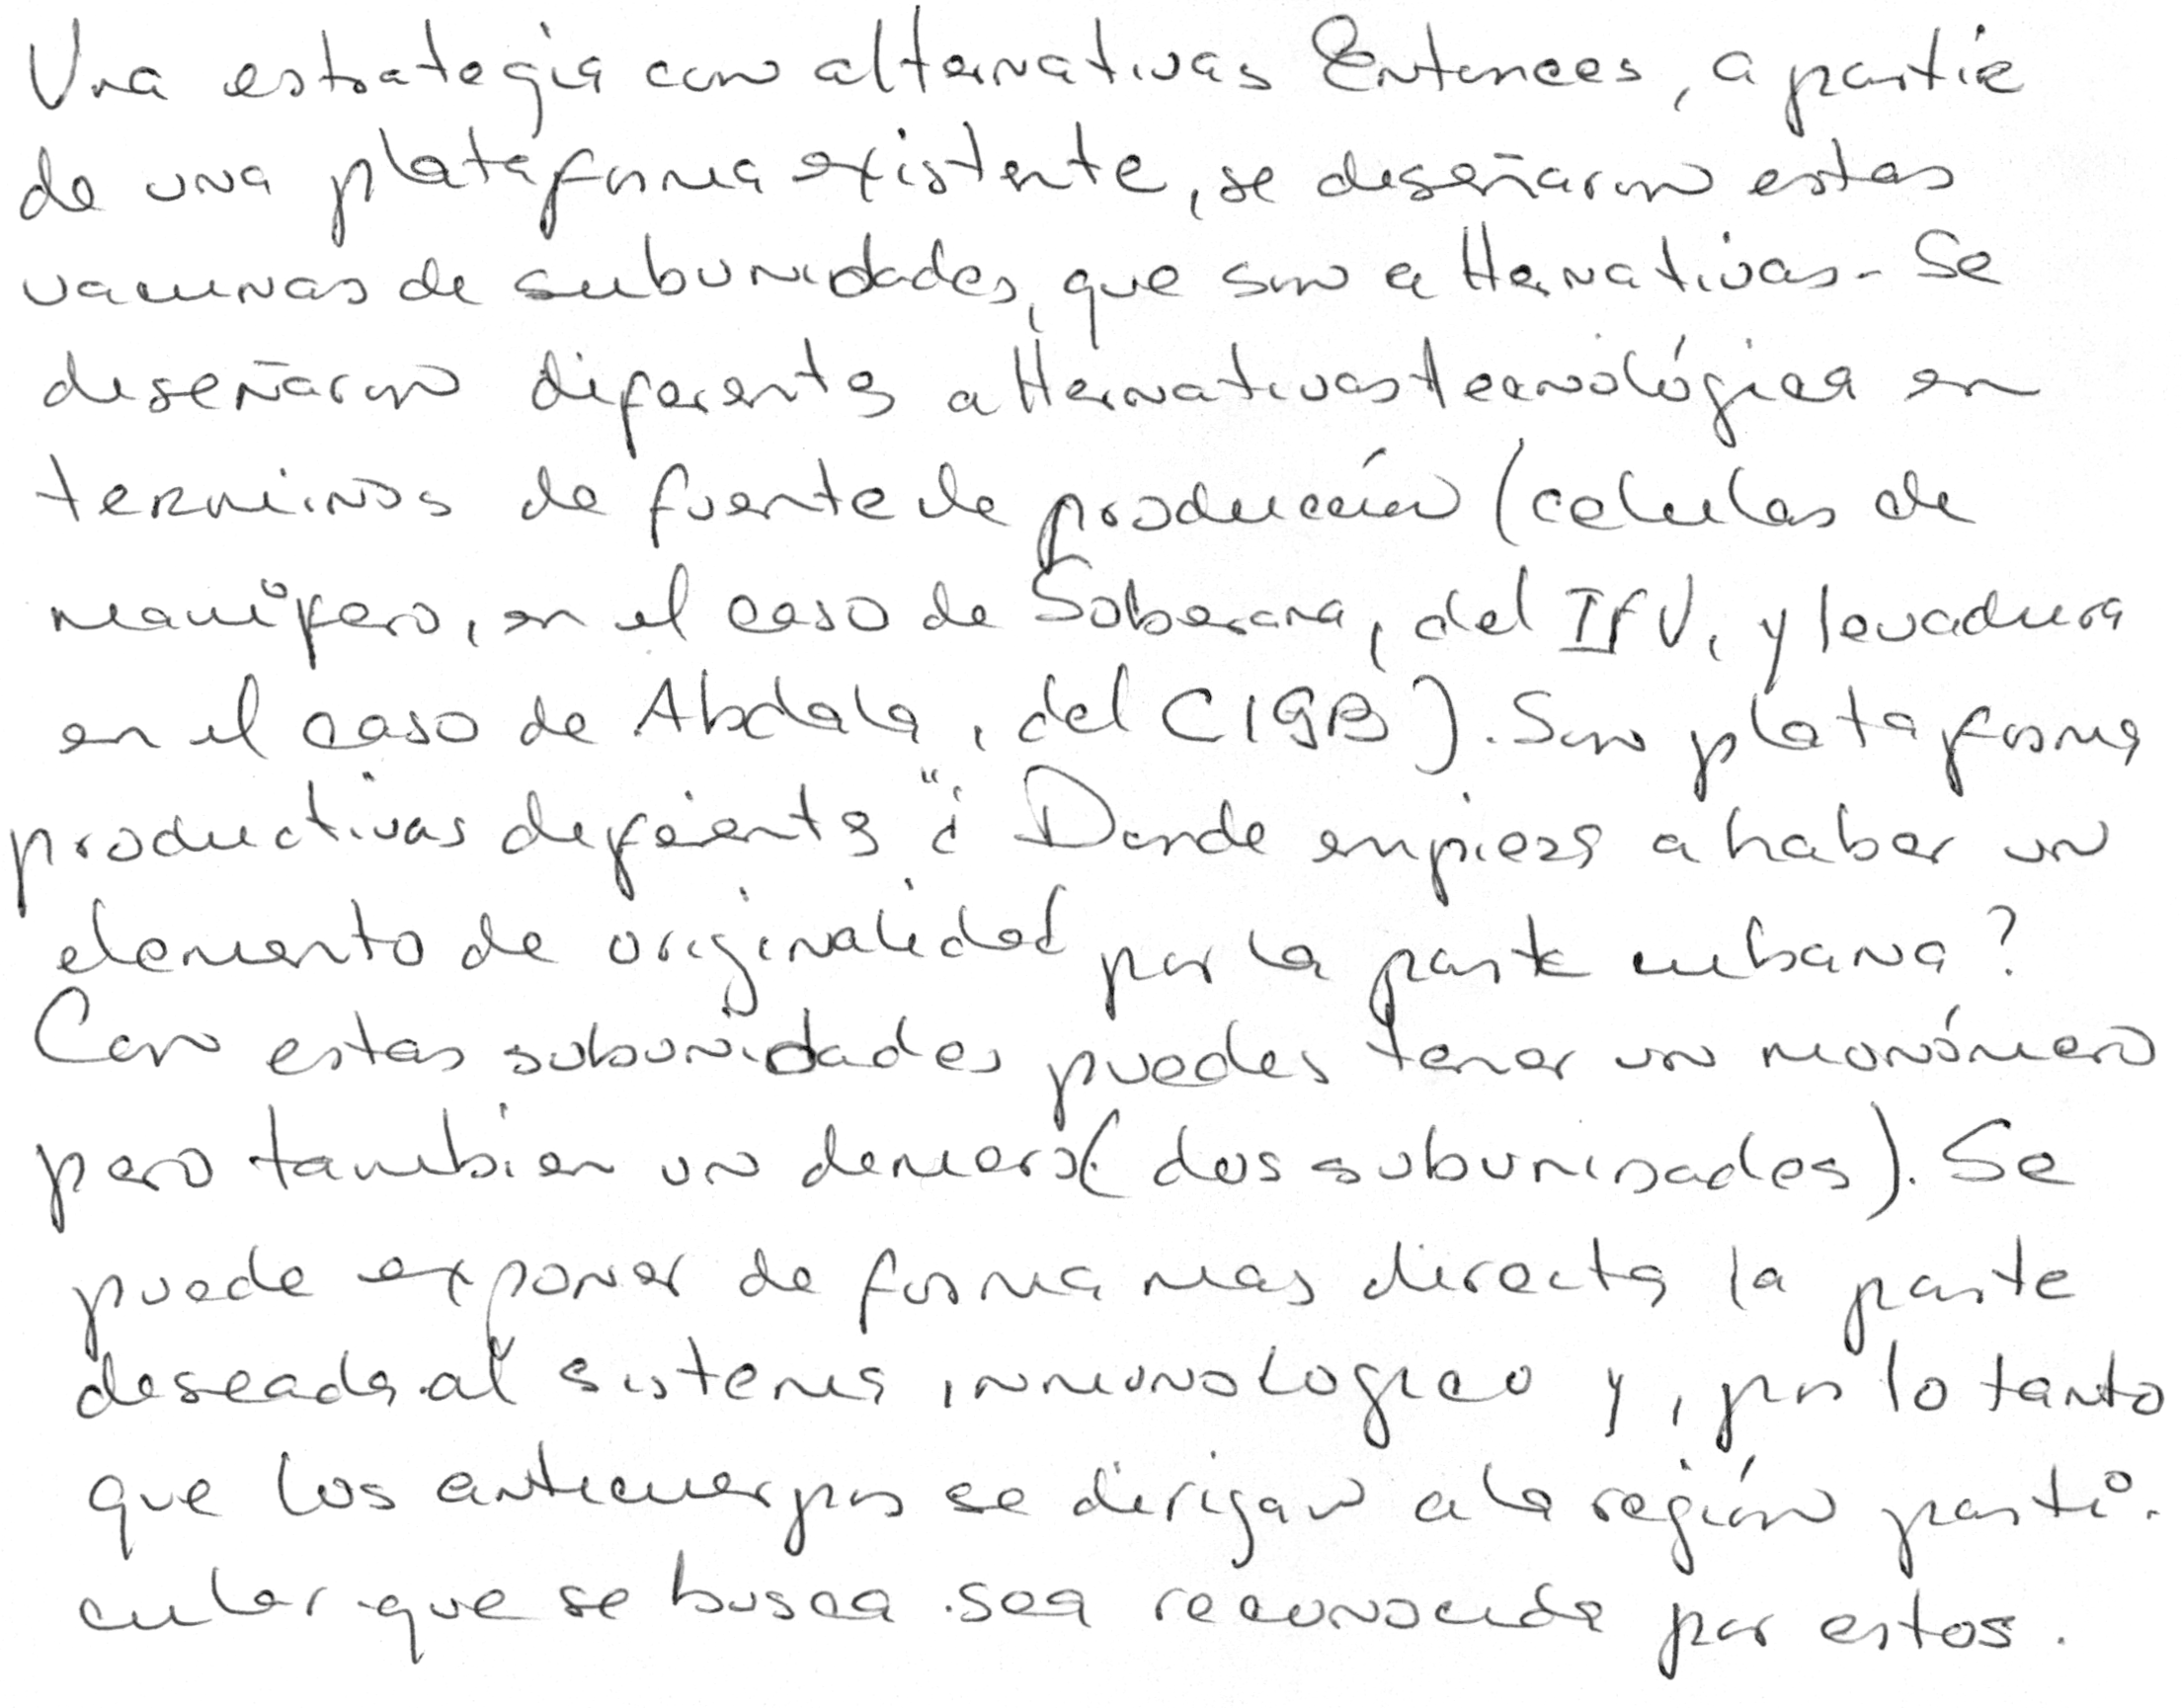 Una estrategia con alternativas Entonces, a partir
de una plataforma existente, se diseñaron estas
vacunas de subunidades, que son alternativas. Se
diseñaron diferentes alternativas tecnológica en
terminos de fuente de producción (celulas de
mamífero, en el caso de Soberana, del IFV, y levadura
en el caso de Abdala, del CIGB). Son plataforma
productivas diferentes "¿Donde empieza a haber un
elemento de originalidad por la parte cubana?
Con estas subunidades puedes tener un monómero
pero tambien un dimero (dos subunidades). Se
puede exponer de forma mas directa la parte
deseada al sistema inmunologico y, por lo tanto
que los anticuerpos se dirigan a la región parti-
cular que se busca sea reconocida por estos.